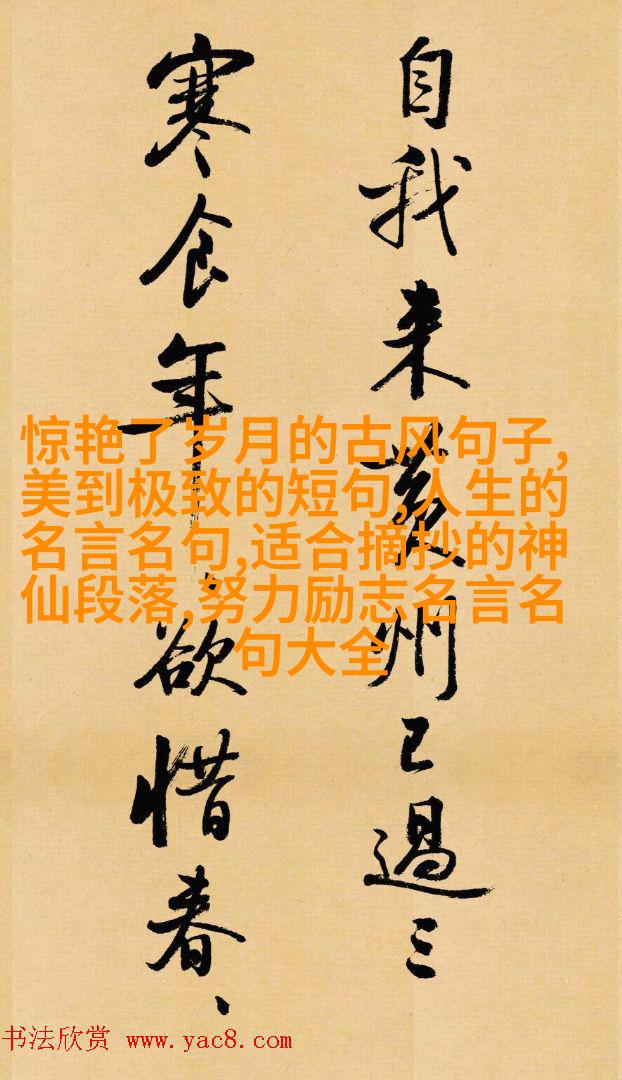 自我来黄州已過三
寒食年〻欲惜春、
惊艳了岁月的古风句子,
美到极致的短句,人生的
名言名句,适合摘抄的神
仙段落,努力励志名言名
句大全
书法欣赏 www.yac8.com